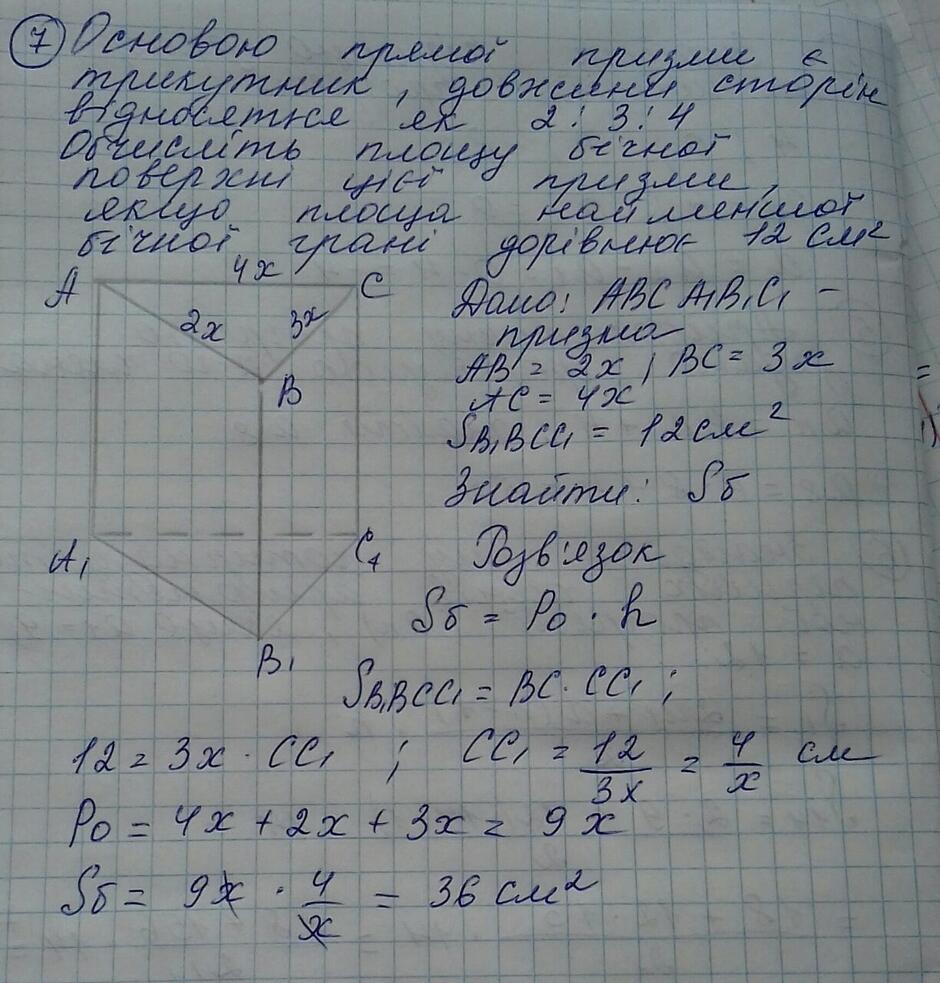 7 Основою прямої призми є
трикутник, довжини сторін
відносяться як 2:3:4
Обчисліть площу бічної
поверхні цієї призми,
якщо площа найменшої
бічної грані дорівнює 12 см²
A 4x C
2x 3x
B
A₁ C₁
B₁
Дано: ABCA₁B₁C₁ –
призма
AB = 2x; BC = 3x
AC = 4x
SB₁BCC₁ = 12 см²
Знайти: Sб
Розв'язок
Sб = Pо · h
SB₁BCC₁ = BC · CC₁;
12 = 3x · CC₁ ; CC₁ = 12/3x = 4/x см
Pо = 4x + 2x + 3x = 9x
Sб = 9x · 4/x = 36 см²